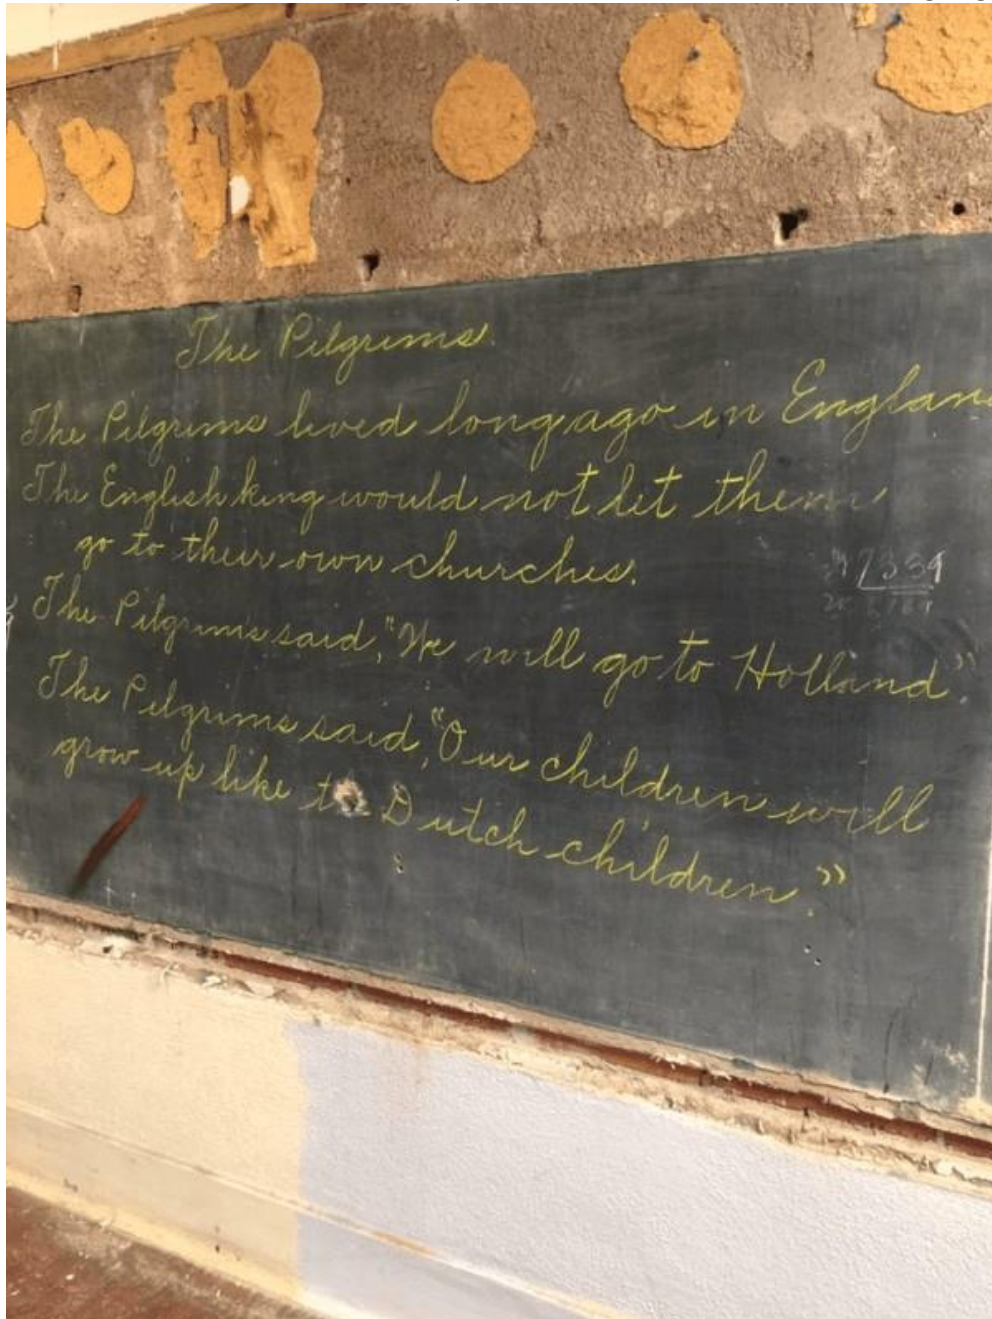 The Pilgrims.
The Pilgrims lived long ago in Englan
The English king would not let them
go to their own churches.
The Pilgrims said, "We will go to Holland".
The Pilgrims said, "Our children will
grow up like to Dutch children."
7339